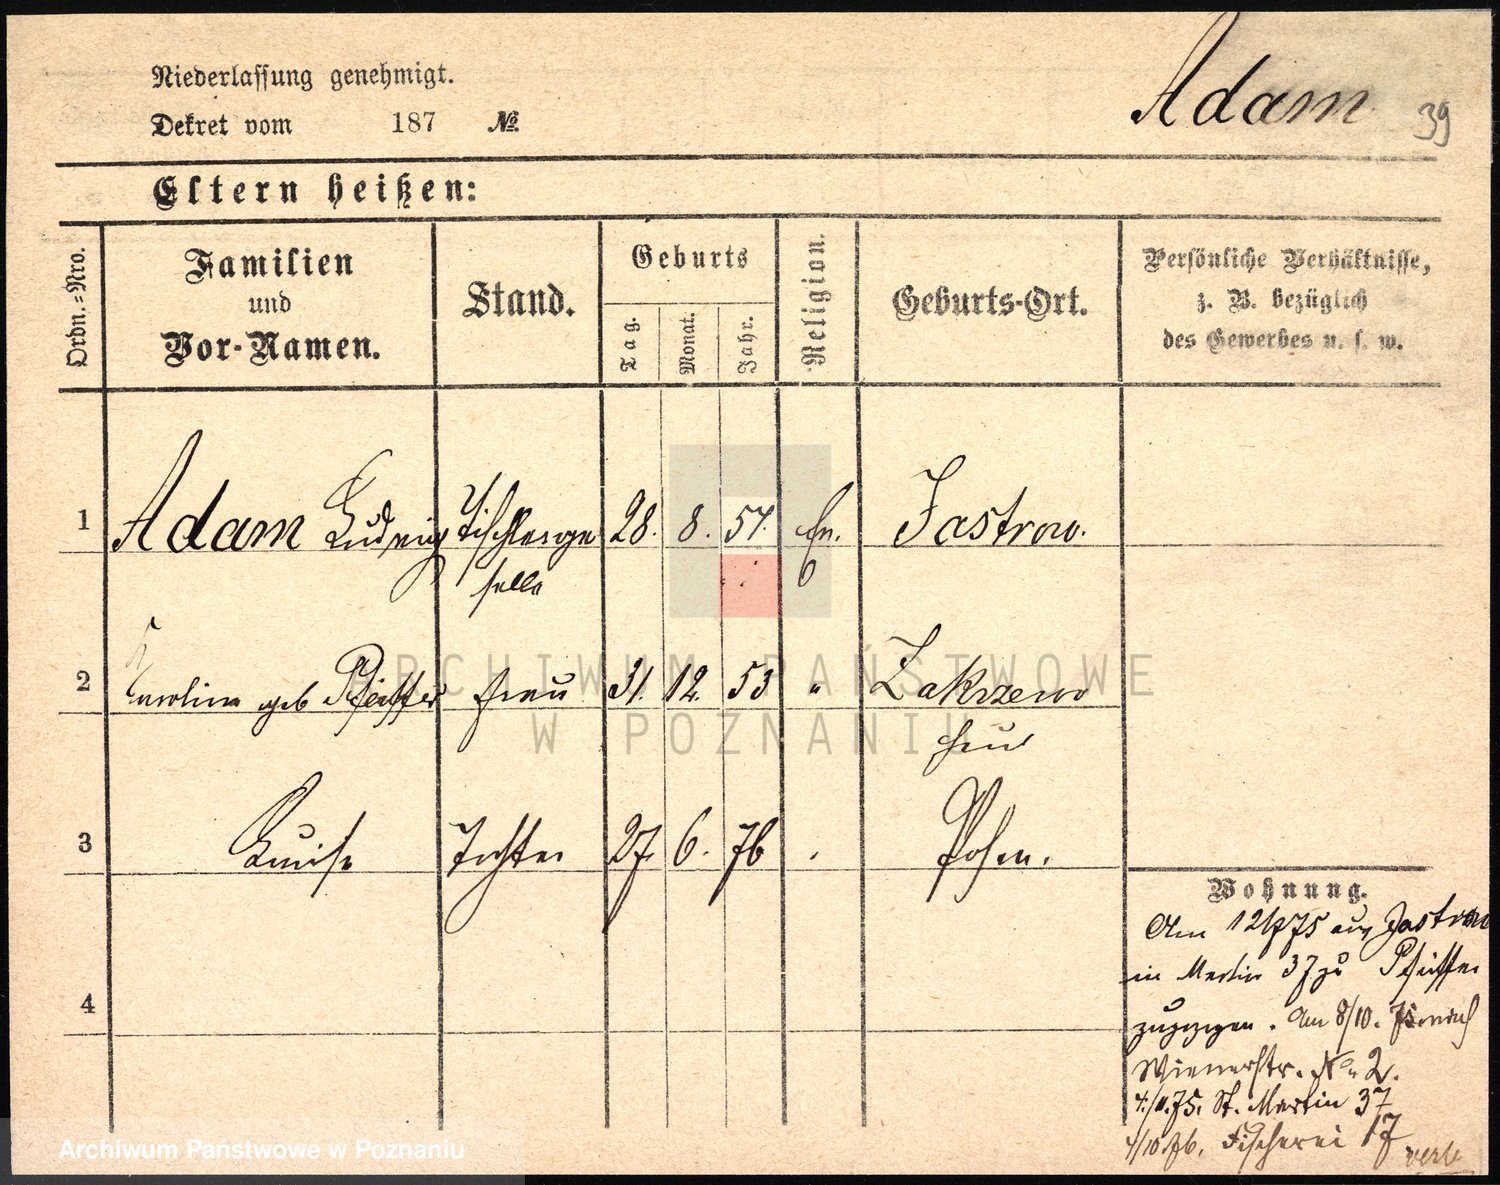 Niederlassung genehmigt.
Adam
39
Dekret vom 187 №
Eltern heißen:
Ordn.=Nro.
Familien
und
Vor-Namen.
Stand.
Geburts
Tag.
Monat.
Jahr.
Religion.
Geburts-Ort.
Persönliche Verhältnisse,
z. B. bezüglich
des Gewerbes u. s. w.
1 Adam Ludwig Tischlerge 28. 8. 51. Ev. Jastrow.
selle
2 Karoline geb Pfeiffer Frau 31. 12. 53 " Zakrzewo
ARCHIWUM PAŃSTWOWE
W POZNANIU
3 Luise Tochter 27. 6. 76 Posen.
Wohnung.
Am 12/7 75 aus Jastrow
in Martin 37 zu Pfeiffer
zugezogen. Am 8/10. 75. nach
4
Wienerstr. No 2.
St. Martin 37
Fischerei 17
Archiwum Państwowe w Poznaniu